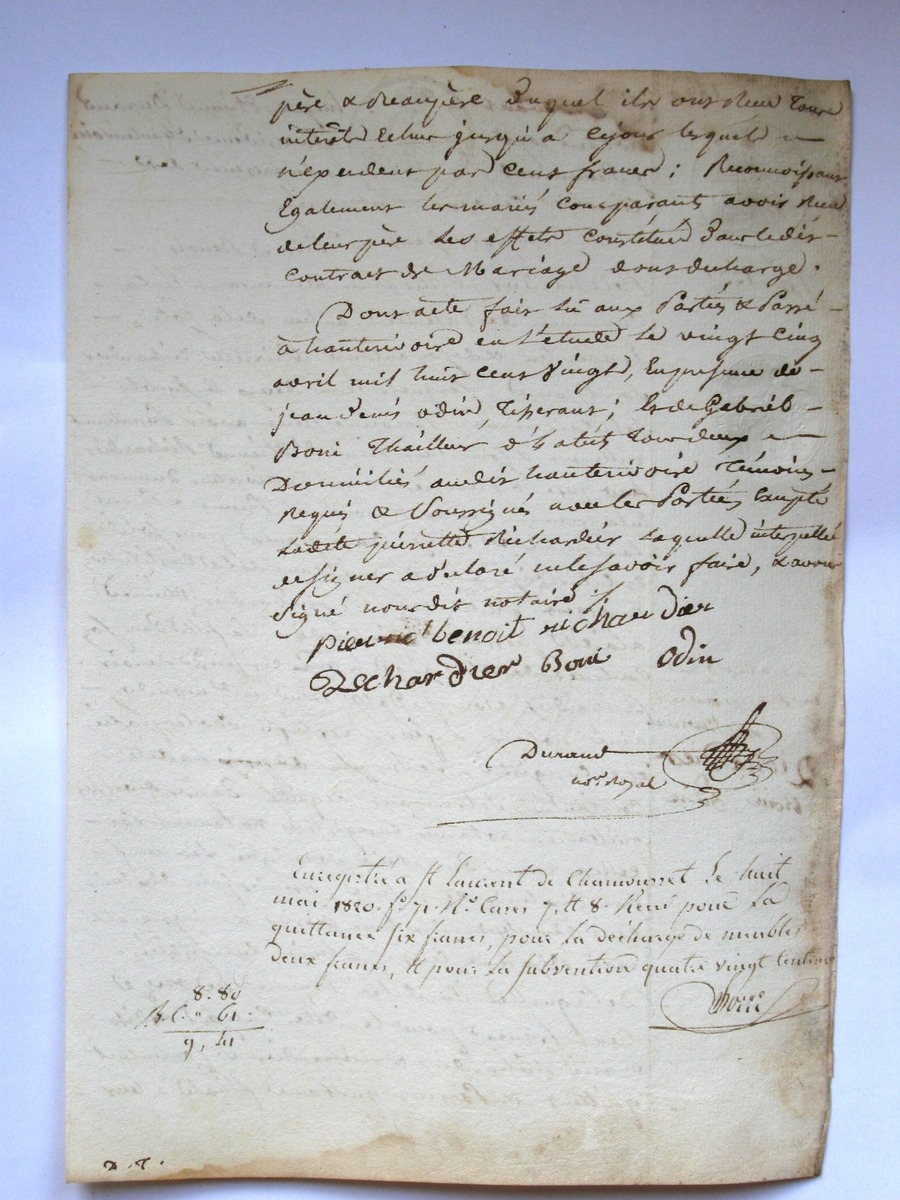 père & Beaupère duquel ils ont Reçu Tous
intérêts Echus jusqu'a cejour lesquels
n'exedent pas Cent francs ; Reconnoissant
Egalement les mariés Comparants avoir Reçu
deleur père les effets Constitués dans ledit
Contrat de Mariage dont décharge .
Dont acte fait Lu aux Parties & Passé
a hauterivoire en L'etude Le vingt Cinq
avril mil huit Cent Vingt, En présence de
jean denis odin, Tisserant ; Et de Gabriel
Boni Thailleur d'habits Tous deux
Domiciliés audit hauterivoire Témoins
Requis & Soussignés avec les Parties Excepté
Ladite pierrette Richardier Laquelle interpellée
de signer a déclaré ne le savoir faire, & avons
Signé nous dit notaire ./.
pierre benoit richardier
Rechardier Boni Odin
Durand
not. Royal
Enregistré a St Laurent de Chamousset Le huit
mai 1820. fo. 71. Ro. Cases 7. et 8. Reçu pour La
quittance six francs, pour La décharge de meubles
deux francs, et pour La subvention quatre vingt Centimes
8. 80
" 61.
9, 41
D. T.